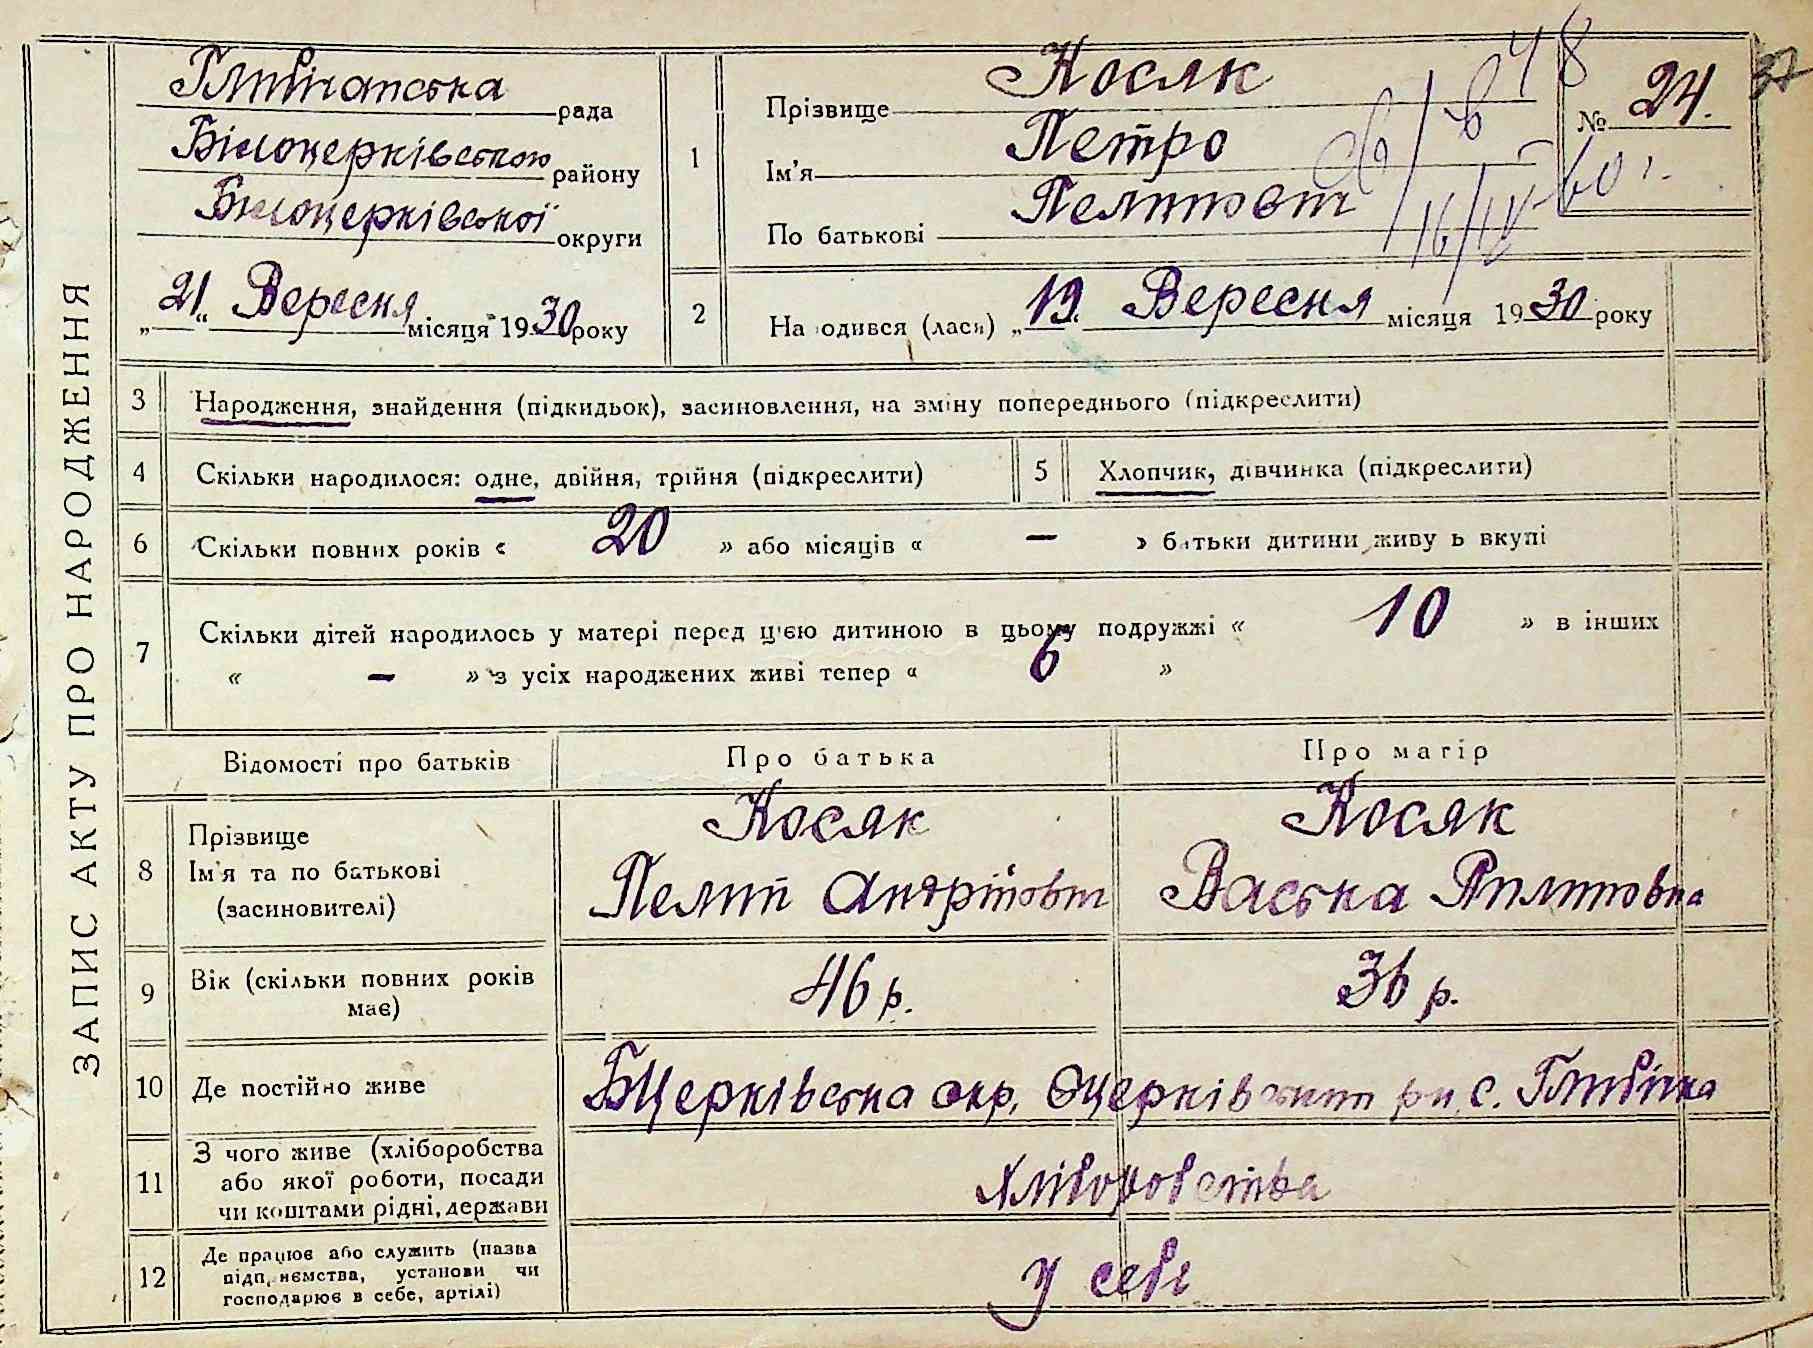 ЗАПИС АКТУ ПРО НАРОДЖЕННЯ
Глибічанська рада
Білоцерківського району
Білоцерківської округи
„21“ Вересня місяця 1930 року
1
Прізвище Косяк
Ім'я Петро
По батькові
№ 24.
37
48
16/IV 60 г.
2
На одився (лася) „19“ Вересня місяця 1930 року
3 Народження, знайдення (підкидьок), засиновлення, на зміну попереднього (підкреслити)
4 Скільки народилося: одне, двійня, трійня (підкреслити)
5 Хлопчик, дівчинка (підкреслити)
6 Скільки повних років « 20 » або місяців « — » батьки дитини живу ь вкупі
7 Скільки дітей народилось у матері перед ц'єю дитиною в цьому подружжі « 10 » в інших
« — » з усіх народжених живі тепер « 6 »
Відомості про батьків
Про батька
Про матір
8 Прізвище
Ім'я та по батькові
(засиновителі)
Косяк
Косяк
Васька
9 Вік (скільки повних років
має)
46 р.
36 р.
10 Де постійно живе
БЦерківська окр. БЦерківський рн. с. Глибічка
11 З чого живе (хліборобства
або якої роботи, посади
чи коштами рідні, держави
Хліборобства
12 Де працює або служить (назва
підприємства, установи чи
господарює в себе, артілі)
У себе